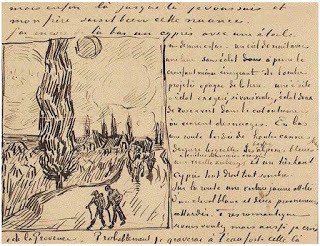 mais enfin là jusque là je
et mon père
J'ai encore de là bas un cyprès avec une étoile
un dernier essai - un ciel de nuit avec
une lune sans éclat à peine le
croissant mince émergeant de l'ombre
projetée opaque de la terre - une étoile
à éclat exagéré, si vous voulez, éclat doux
de rose & vert dans le ciel outremer
où courent des nuages. En bas
une route bordée de hautes cannes
jaunes derrière lesquelles les basses Alpines bleues
une vieille auberge et un très haut
cyprès tout droit tout sombre
Sur la route une voiture jaune attelée
d'un cheval blanc et deux promeneurs
attardés. Très romantique
si vous voulez mais aussi je crois
de la Provence. Probablement je graverai à l'eau forte celle là